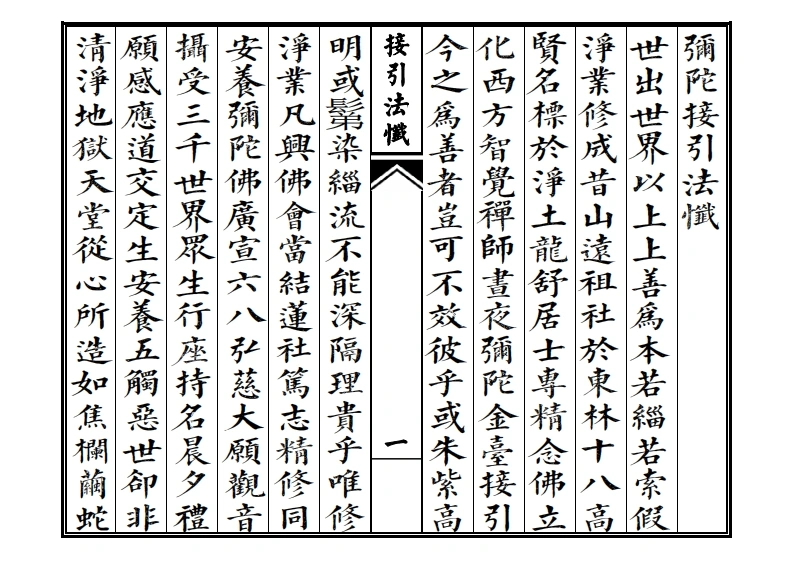 彌陀接引法懺
世出世界以上上善爲本若緇若索假
淨業修成昔山遠祖社於東林十八高
賢名標於淨土龍舒居士專精念佛立
化西方智覺禪師晝夜彌陀金臺接引
今之爲善者豈可不效彼乎或朱紫高
接引法懺
一
明或鬀染緇流不能深隔理貴乎唯修
淨業凡興佛會當結蓮社篤志精修同
安養彌陀佛廣宣六八弘慈大願觀音
攝受三千世界眾生行座持名晨夕禮
願感應道交定生安養五觸惡世卻非
清淨地獄天堂從心所造如焦欄繭蛇